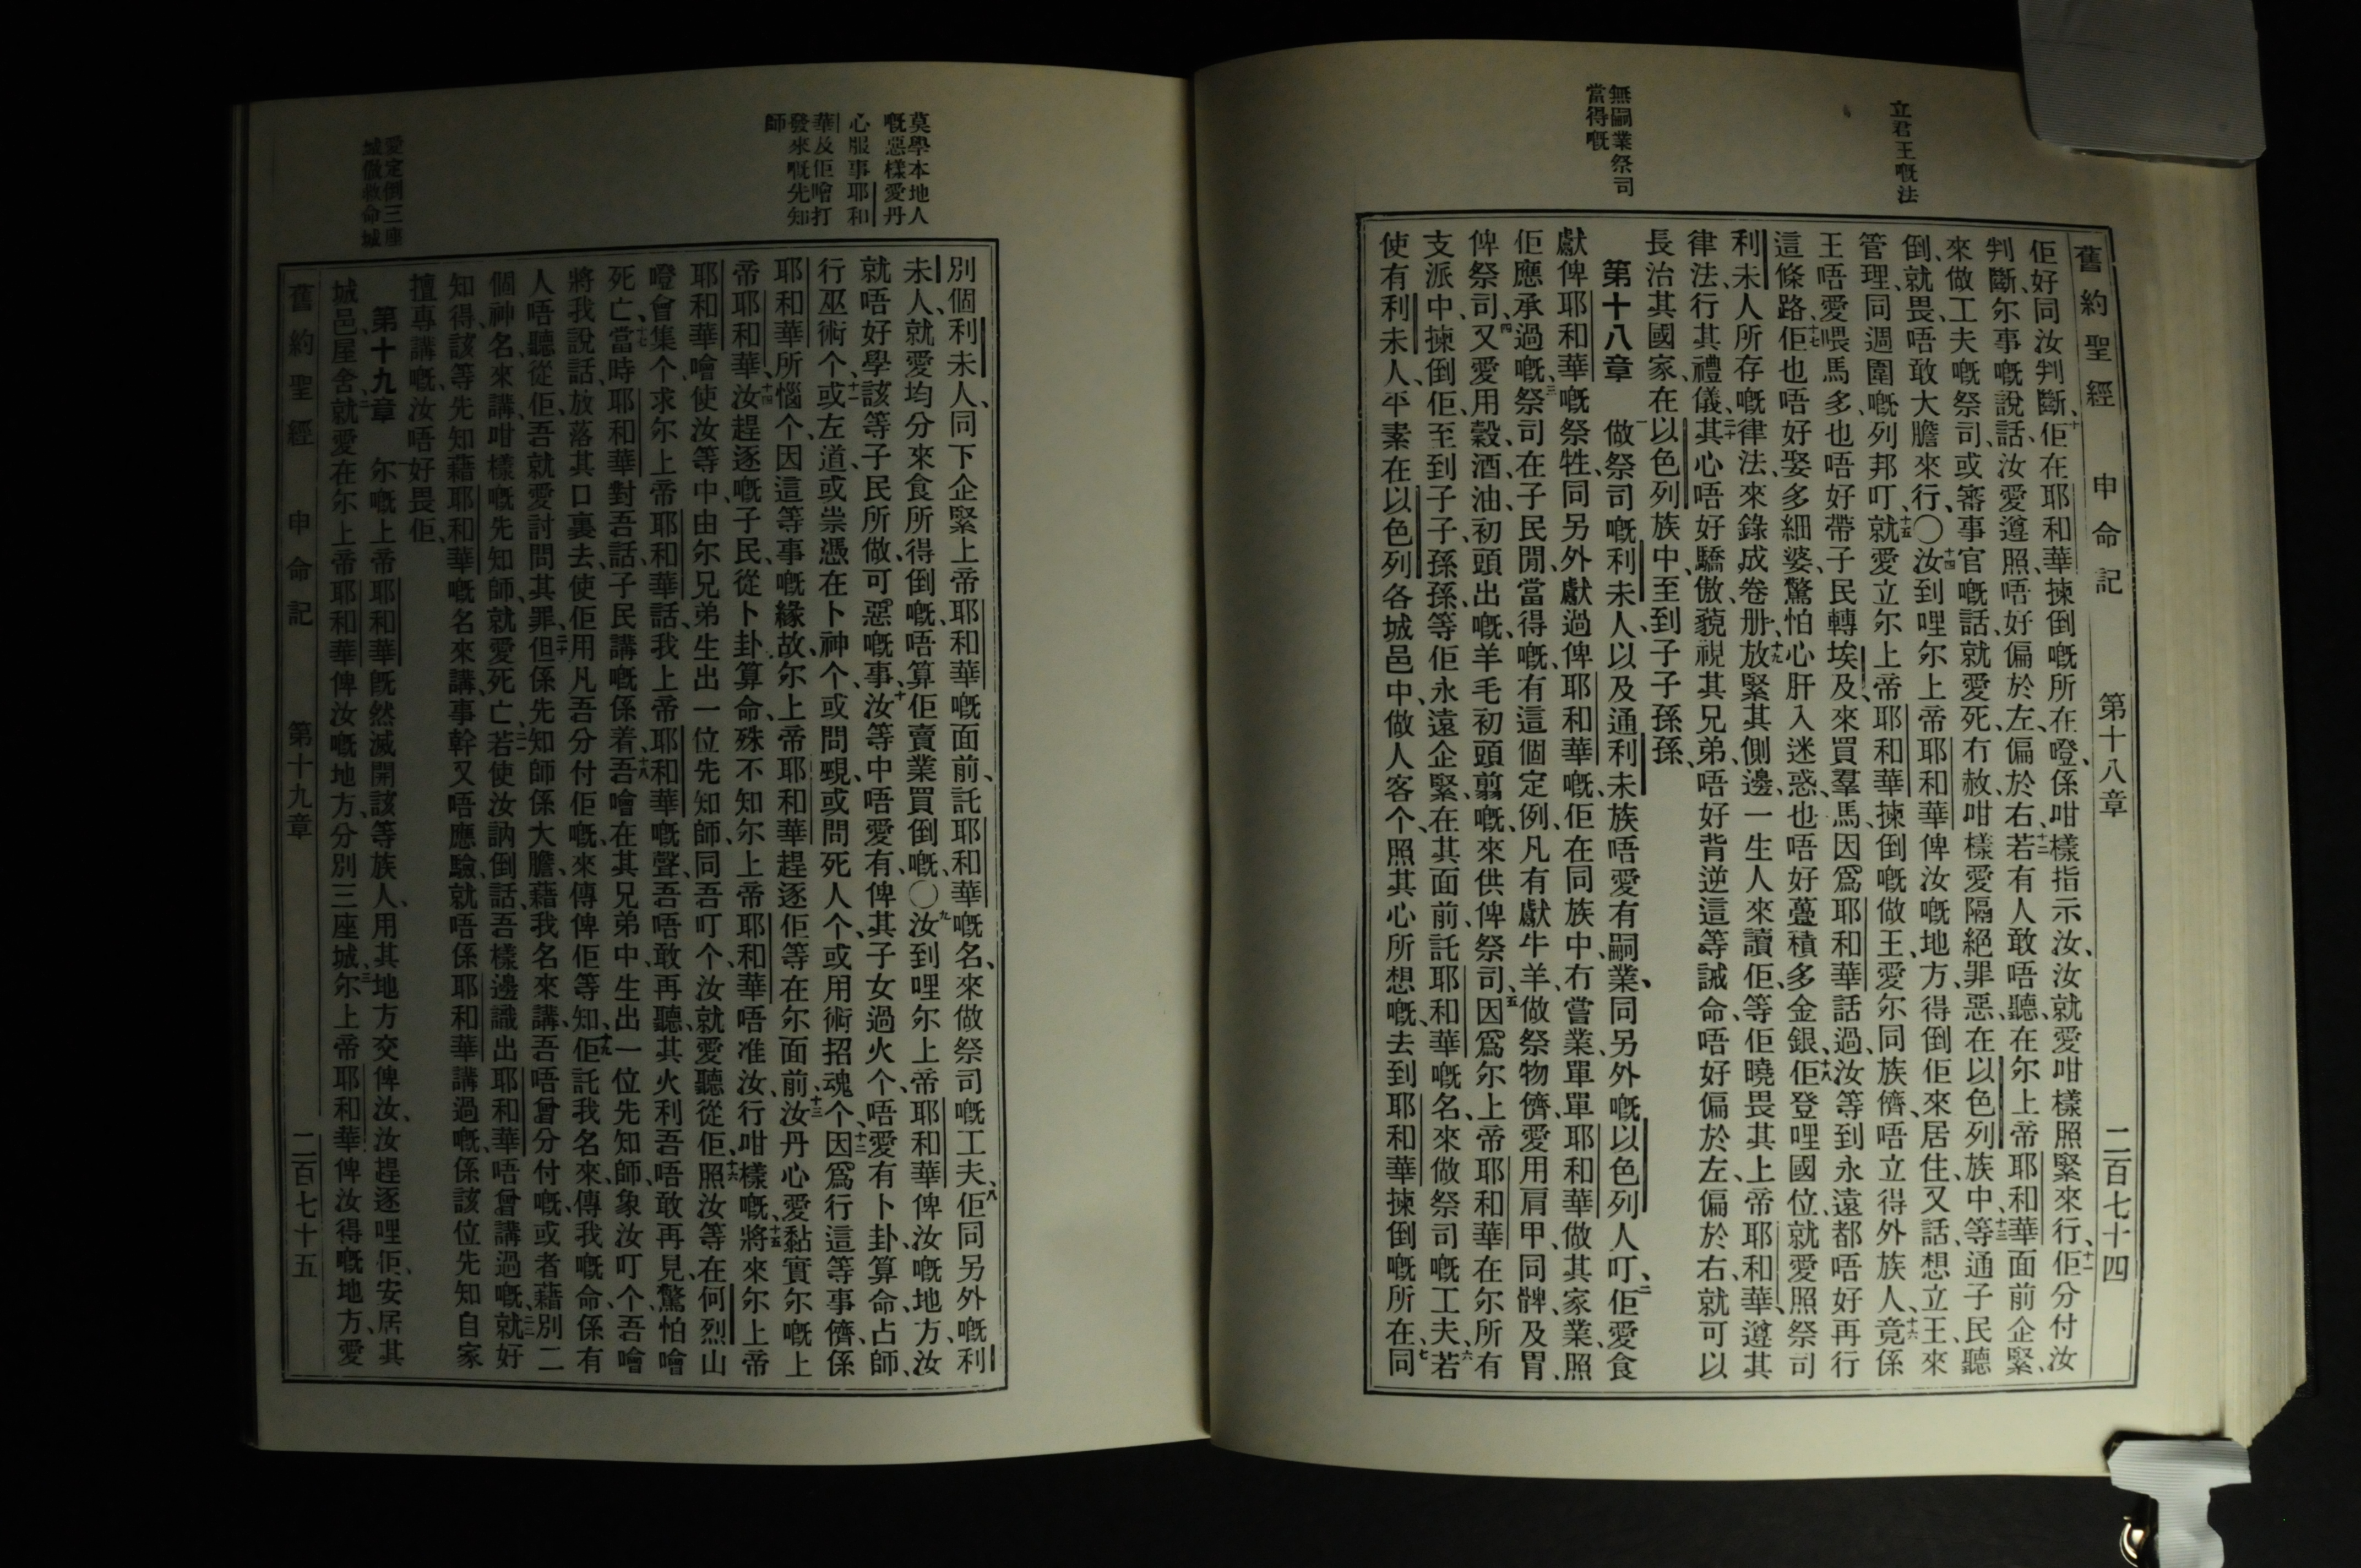 舊約聖經　申命記　第十八章　二百七十四
立君王嘅法
無嗣業祭司
當得嘅
佢好同汝判斷、十佢在耶和華揀倒嘅所在、噔、係咁樣指示汝、汝就愛咁樣照緊來行、十一佢分付汝
判斷尔事嘅說話、汝愛遵照、唔好偏於左、偏於右、十二若有人敢唔聽、在尔上帝耶和華面前企緊、
來做工夫嘅祭司、或審事官嘅話、就愛死、冇赦、咁樣愛隔絕罪惡、在以色列族中、十三等通子民聽
倒、就畏、唔敢大膽來行、〇十四汝到哩尔上帝耶和華俾汝嘅地方、得倒佢來居住、又話、想立王來
管理、同週圍嘅列邦叮、十五就愛立尔上帝耶和華揀倒嘅做王、愛尔同族儕、唔立得外族人、十六竟係
王唔愛喂馬多、也唔好帶子民轉埃及、來買羣馬、因爲耶和華話過、汝等到永遠都唔好再行
這條路、十七佢也唔好娶多細婆、驚怕心肝入迷惑、也唔好蔓積多金銀、十八佢登哩國位、就愛照祭司
利未人所存嘅律法、來錄成卷册、十九放緊其側邊、一生人來讀佢、等佢曉畏其上帝耶和華、遵其
律法、行其禮儀、二十其心唔好驕傲、藐視其兄弟、唔好背逆這等誡命、唔好偏於左、偏於右、就可以
長治其國家、在以色列族中、至到子子孫孫、
第十八章　一做祭司嘅利未人、以及通利未族唔愛有嗣業、同另外嘅以色列人叮、二佢愛食
獻俾耶和華嘅祭牲、同另外獻過俾耶和華嘅、佢在同族中、冇嘗業、單單耶和華做其家業、照
佢應承過嘅、三祭司在子民閒、當得嘅、有這個定例、凡有獻牛羊、做祭物儕、愛用肩甲、同髀、及胃、
俾祭司、四又愛用穀、酒、油、初頭出嘅、羊毛初頭翦嘅、來供俾祭司、五因爲尔上帝耶和華在尔所有
支派中、揀倒佢、至到子子、孫孫、等佢永遠企緊、在其面前、託耶和華嘅名、來做祭司嘅工夫、六若
使有利未人、平素在以色列各城邑中、做人客个、照其心所想嘅、去到耶和華揀倒嘅所在、七同
莫學本地人
嘅惡樣愛丹
心服事耶和
華及佢噲打
發來嘅先知
師
愛定倒三座
城做救命城
別個利未人、同下企緊上帝耶和華嘅面前、託耶和華嘅名、來做祭司嘅工夫、八佢同另外嘅利
未人、就愛均分來食所得倒嘅、唔算佢賣業買倒嘅、〇九汝到哩尔上帝耶和華俾汝嘅地方、汝
就唔好學該等子民所做、可惡嘅事、十汝等中唔愛有、俾其子女過火个、唔愛有卜卦、算命、占師、
行巫術个、十一或左道、或祟憑在卜神个、或問覡、或問死人个、或用術招魂个、十二因爲行這等事儕、係
耶和華所惱个、因這等事嘅緣故、尔上帝耶和華趕逐佢等在尔面前、十三汝丹心愛黏實尔嘅上
帝耶和華、十四汝趕逐嘅子民、從卜卦算命、殊不知尔上帝耶和華唔准汝、行咁樣嘅、十五將來尔上帝
耶和華噲使汝等中、由尔兄弟生出一位先知師、同吾叮个、汝就愛聽從佢、十六照汝等在何烈山
噔會集个、求尔上帝耶和華話、我上帝耶和華嘅聲、吾唔敢再聽、其火利吾唔敢再見、驚怕噲
死亡、十七當時耶和華對吾話、子民講嘅係着、十八吾噲在其兄弟中、生出一位先知師、象汝叮个、吾噲
將我說話、放落其口裏去、使佢用凡吾分付佢嘅、來傳俾佢等知、十九佢託我名來、傳我嘅命、係有
人唔聽從佢、吾就愛討問其罪、二十但係先知師係大膽、藉我名來講、吾唔曾分付嘅、或者藉別二
個神名、來講、咁樣嘅先知師、就愛死亡、二一若使汝訥倒話、吾樣邊識出耶和華唔曾講過嘅、二二就好
知得、該等先知藉耶和華嘅名來講、事幹又唔應驗、就唔係耶和華講過嘅、係該位先知自家
擅專講嘅、汝唔好畏佢、
第十九章　一尔嘅上帝耶和華旣然滅開該等族人、用其地方交俾汝、汝趕逐哩佢、安居其
城邑、屋舍、二就愛在尔上帝耶和華俾汝嘅地方、分別三座城、三尔上帝耶和華俾汝得嘅地方、愛
舊約聖經　申命記　第十九章　二百七十五